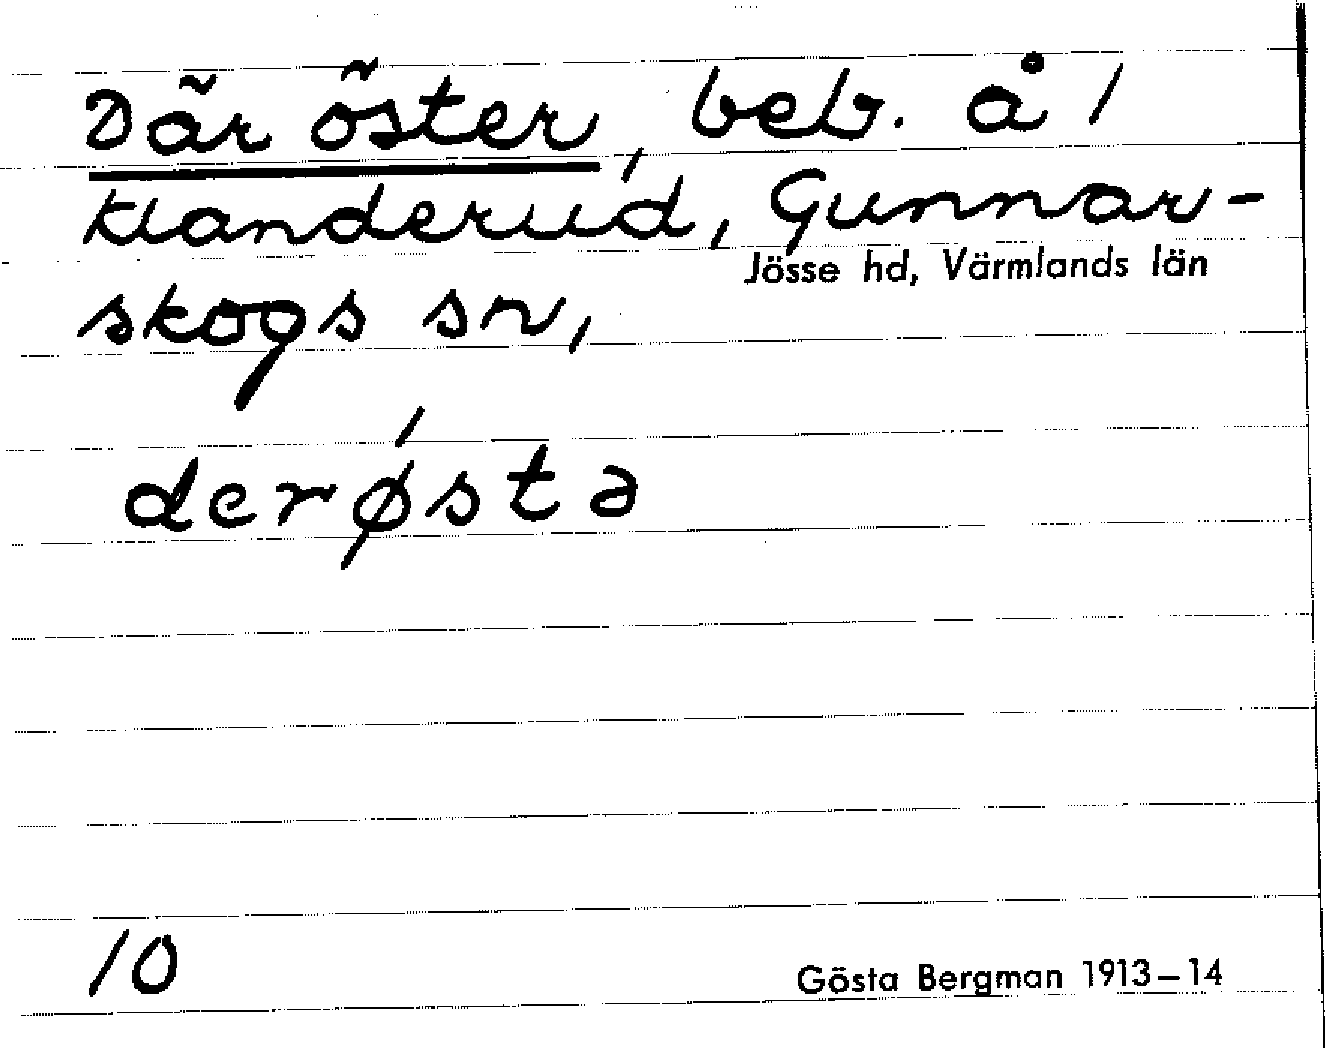 Där öster, beb. å 1
Klanderud, Gunnar-
Jösse hd, Värmlands län
skogs sn,
derø´sta
10
Gösta Bergman 1913–14